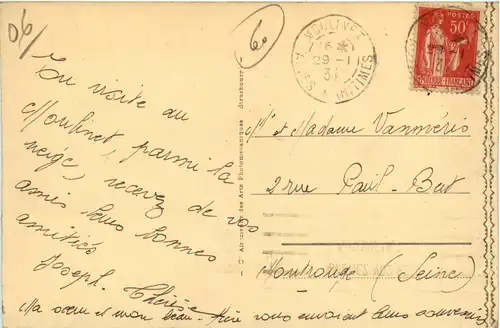 06/
60
En visite au
Moulinet, parmi la
neige, recevez de vos
amis leurs bonnes
amitiés
Joseph. Thérèse
Ma soeur et mon beau-frère vous envoient leurs souvenirs
Mr et Madame Vanméris
2 rue Paul-Bert
Montrouge (Seine)
MOULINET
29-1
ALPES MARITIMES
POSTES
50c
REPUBLIQUE FRANÇAISE
Cie Alsacienne des Arts Photomécaniques Strasbourg